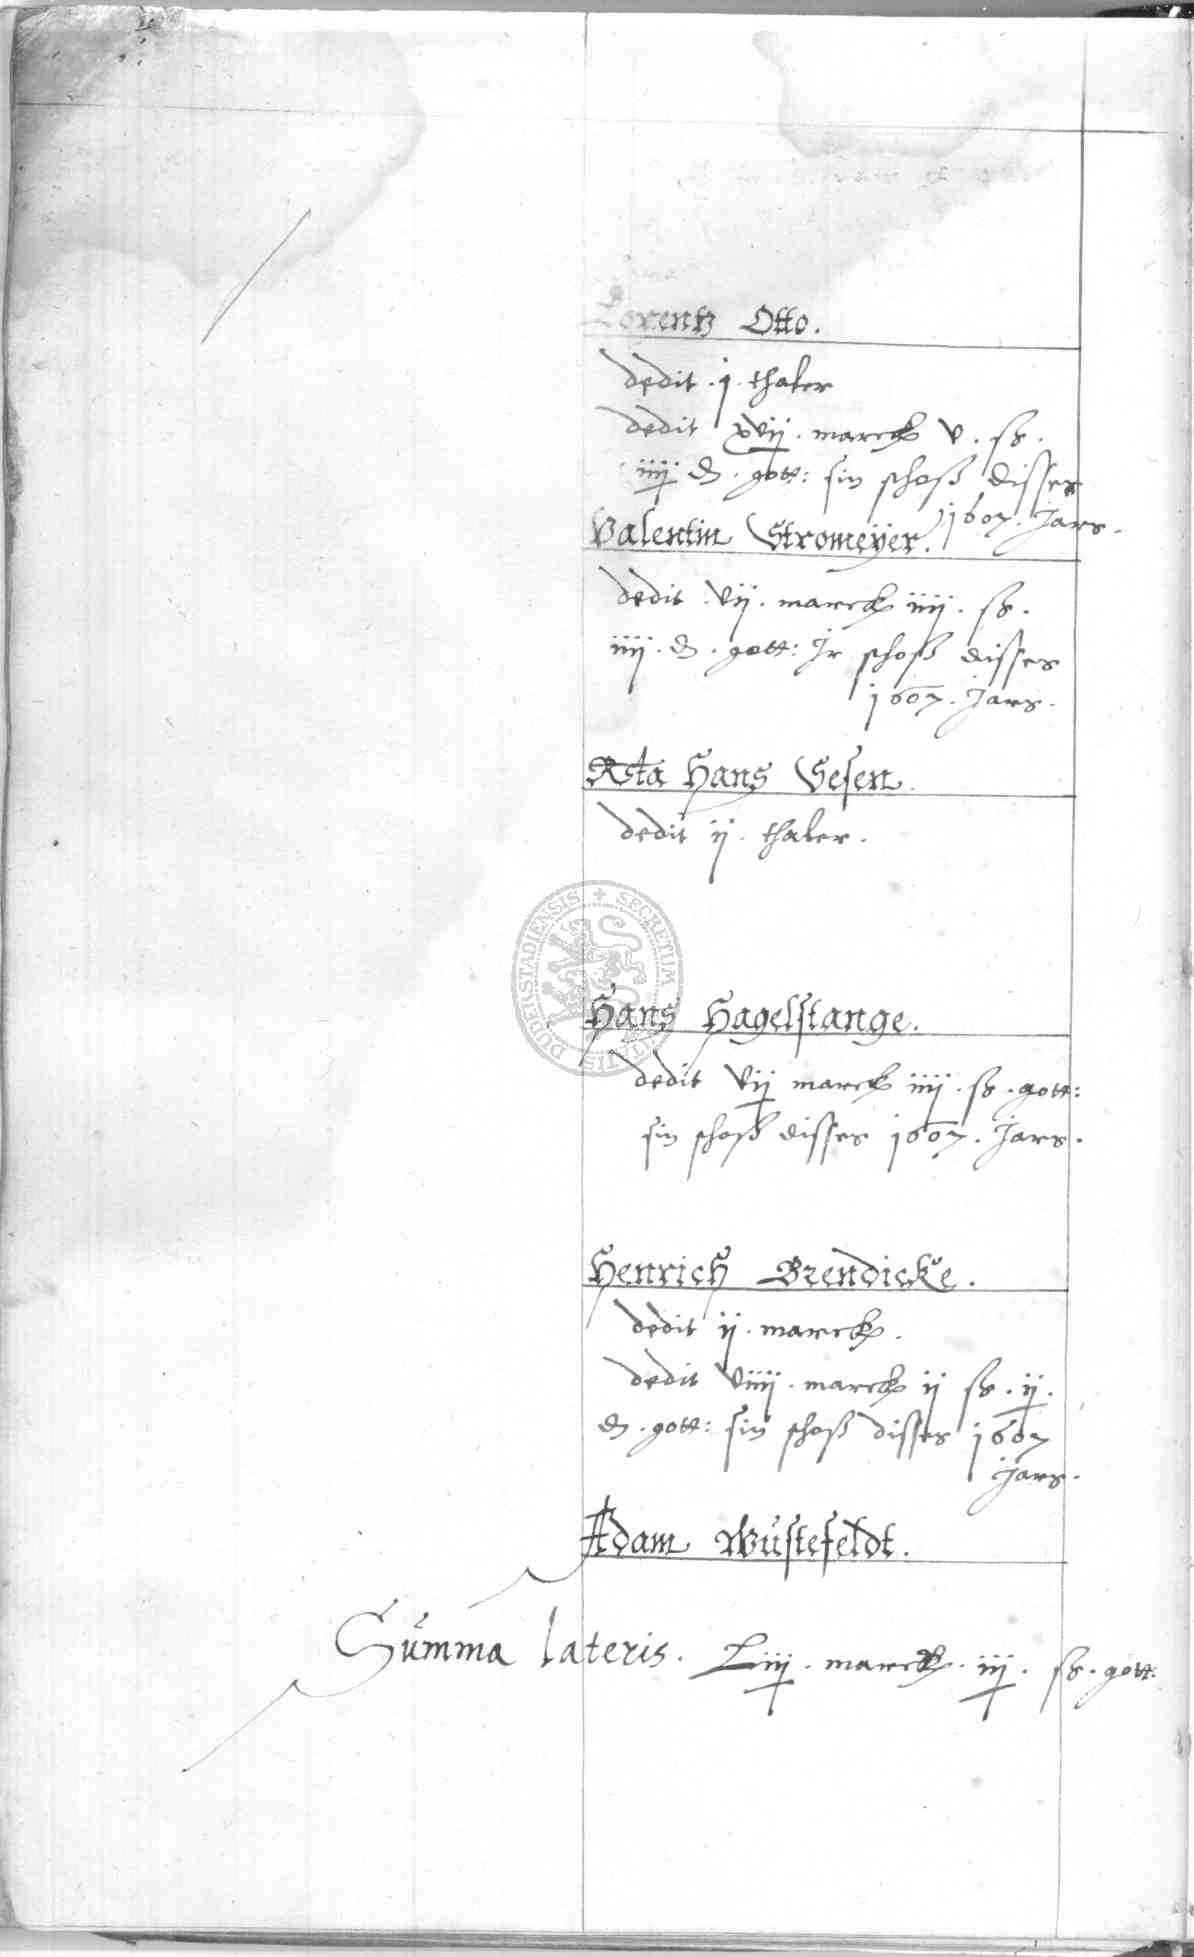 Lorentz Otto.
dedit . j . thaler
dedit xvij . marck v . ß .
iiij ₰ . gott: sin schoß disses
1607 . Jars .
Valentin Stromeÿer.
dedit . vij . marck iiij . ß .
iiij . ₰ . gott: Jr schoß disses
1607 . Jars .
Rcta Hans Gesen .
dedit ij . thaler .
DUDERSTADIENSIS + SECRETUM
Hans Hagelstange .
dedit vij marck iiij . ß . gott:
sin schoß disses 1607 . Jars .
Henrich Brendicke .
dedit ij . marck .
dedit viiij . marck ij ß . ij .
₰ . gott: sin schoß disses 1607
Jars .
Adam Wüstefeldt .
Summa lateris . Liij . marck . iij . ß . gott: